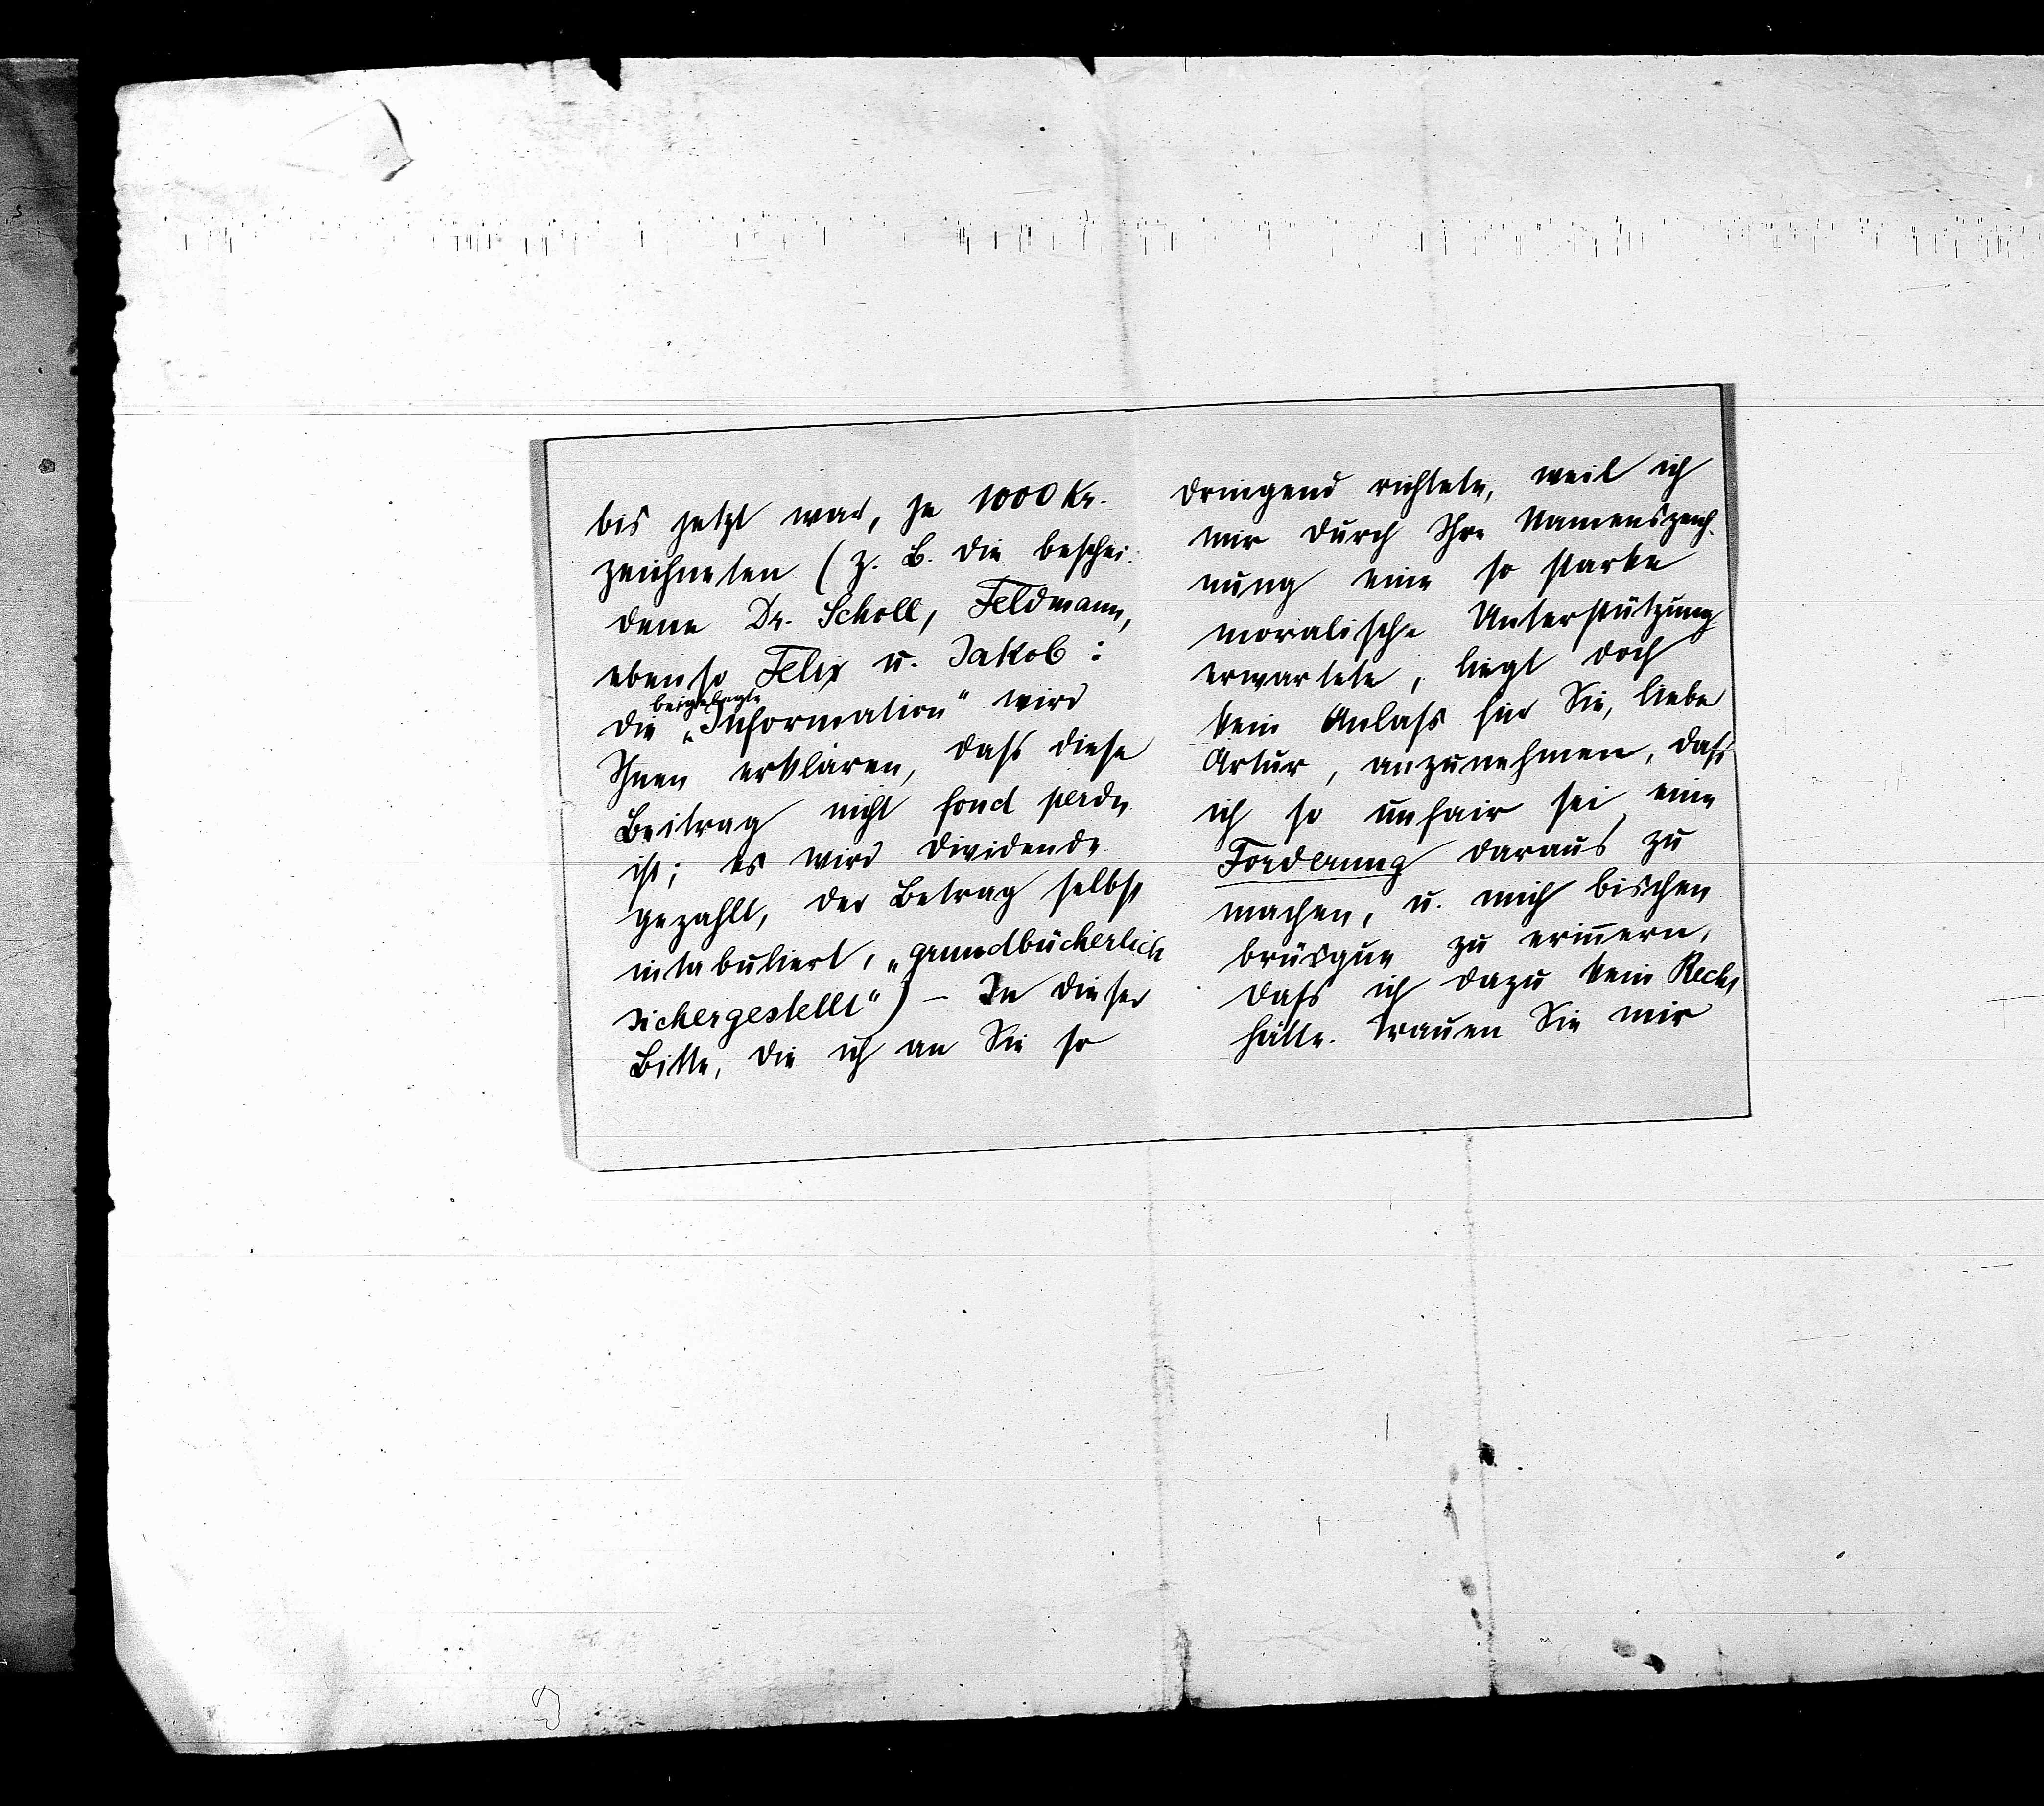 bis jetzt war, je 1000 Kr.
zeichneten (z. B. die beschei-
dene Dr. Scholl, Feldmann,
ebenso Felix u. Jakob:
beigelegte
die „Information“ wird
Ihnen erklären, dass diese
Beitrag nicht fond perdu
ist; es wird Dividende
gezahlt, der Betrag selbst
intabuliert, „grundbücherlich
sichergestellt“) – In dieser
Bitte, die ich an Sie so
dringend richtete, weil ich
mir durch Ihre Namenszeich-
nung eine so starke
moralische Unterstützung
erwartete, liegt doch
kein Anlass für Sie, lieber
Artur, anzunehmen, dass
ich so unfair sei, eine
Forderung daraus zu
machen, u. mich bischen
brüsque zu erinnern,
dass ich dazu kein Recht
hätte. Trauen Sie mir